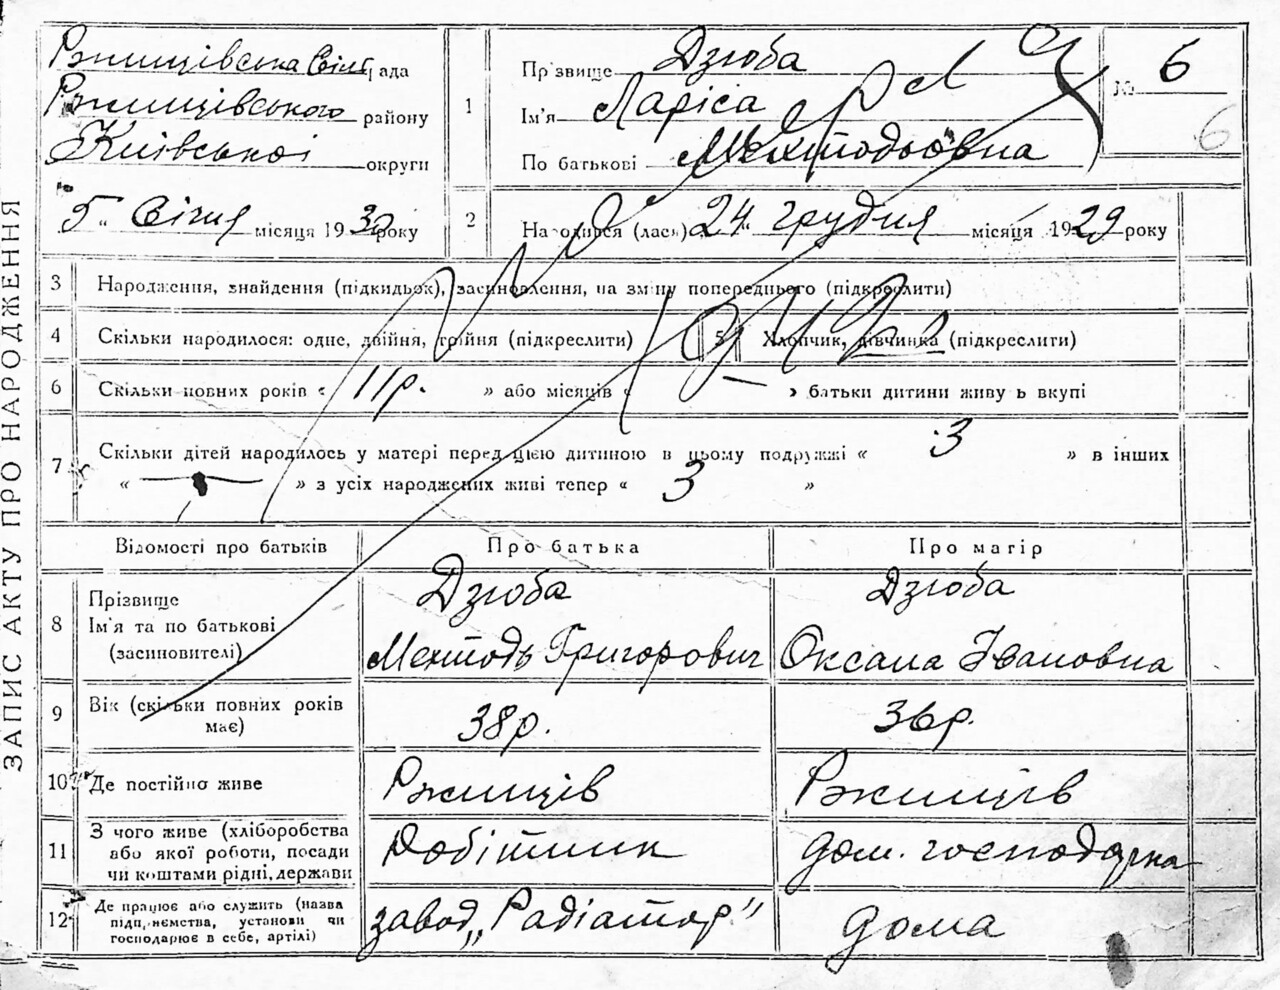 ЗАПИС АКТУ ПРО НАРОДЖЕННЯ
Ржищівська Сільрада
Ржищівського району
Київської округи
5 " Січня місяця 1930 року
1
Прізвище Дзюба
Ім'я Ларіса
По батькові Мехтодьовна
№ 6
6
2
Народився (лася) 24 " грудня місяця 1929 року
3 Народження, знайдення (підкидьок), засиновлення, на зміну попереднього (підкреслити)
4 Скільки народилося: одне, двійня, трійня (підкреслити)
5 Хлопчик, дівчинка (підкреслити)
6 Скільки повних років « 11 р. » або місяців « — » батьки дитини живуть вкупі
7 Скільки дітей народилось у матері перед цією дитиною в цьому подружжі « 3 » в інших
« — » з усіх народжених живі тепер « 3 »
Відомості про батьків Про батька Про матір
8 Прізвище Дзюба Дзюба
Ім'я та по батькові Мехтодь Григорович Оксана Івановна
(засиновителі)
9 Вік (скільки повних років має) 38 р. 36 р.
10 Де постійно живе Ржищів Ржищів
11 З чого живе (хліборобства
або якої роботи, посади
чи коштами рідні, держави
Робітник дом. господарка
12 Де працює або служить (назва
підприємства, установи чи
господарює в себе, артілі)
завод „Радіатор" дома